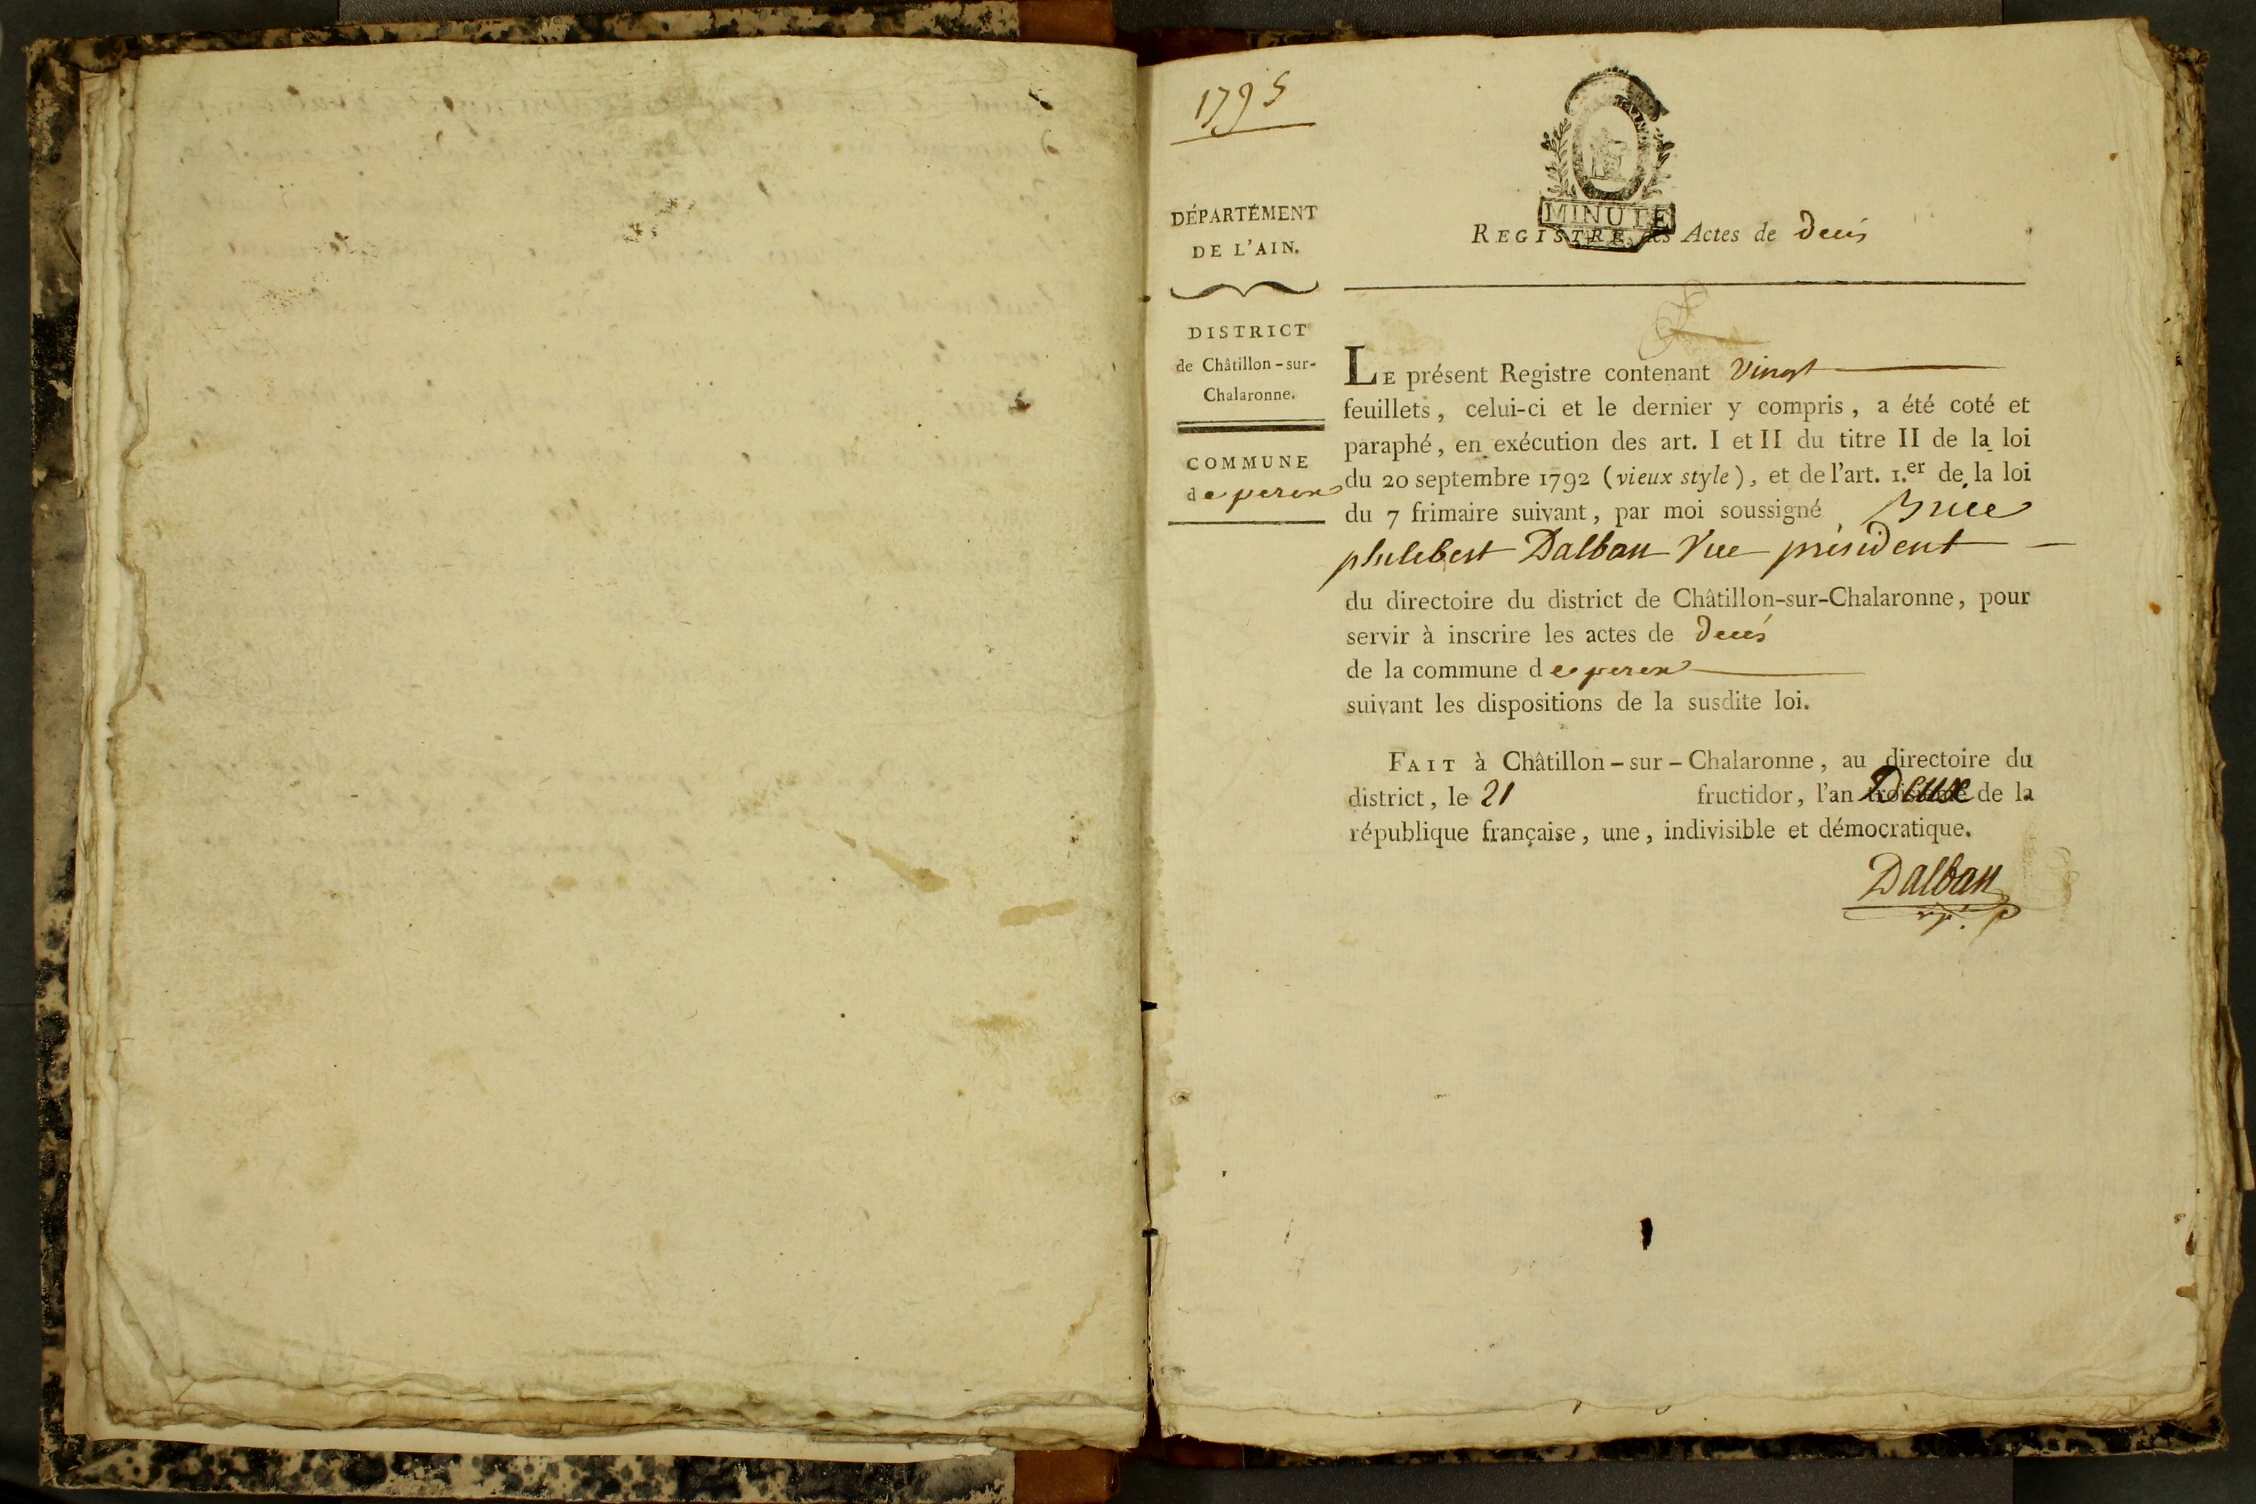 1795
DÉPARTEMENT
DE L'AIN.
DISTRICT
de Châtillon-sur-
Chalaronne.
COMMUNE
de perex
MINUTE
REGISTRE des Actes de Decés
LE présent Registre contenant Vingt
feuillets, celui-ci et le dernier y compris, a été coté et
paraphé, en exécution des art. I et II du titre II de la loi
du 20 septembre 1792 (vieux style), et de l'art. 1.er de la loi
du 7 frimaire suivant, par moi soussigné Brice
philibert Dalban Vice président
du directoire du district de Châtillon-sur-Chalaronne, pour
servir à inscrire les actes de Decés
de la commune de perex
suivant les dispositions de la susdite loi.
FAIT à Châtillon-sur-Chalaronne, au directoire du
district, le 21 fructidor, l'an Deux de la
république française, une, indivisible et démocratique.
Dalban